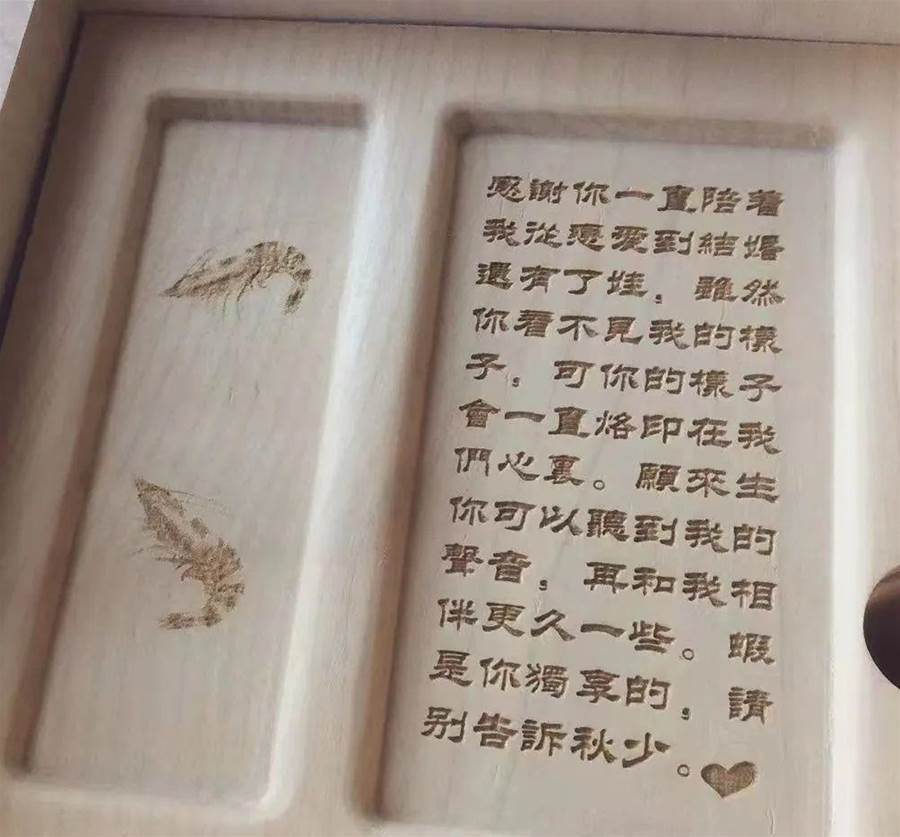 感謝你一直陪着
我從戀愛到結婚
還有了娃，雖然
你看不見我的樣
子，可你的樣子
會一直烙印在我
們心裏。願來生
你可以聽到我的
聲音，再和我相
伴更久一些。蝦
是你獨享的，請
别告訴秋少。